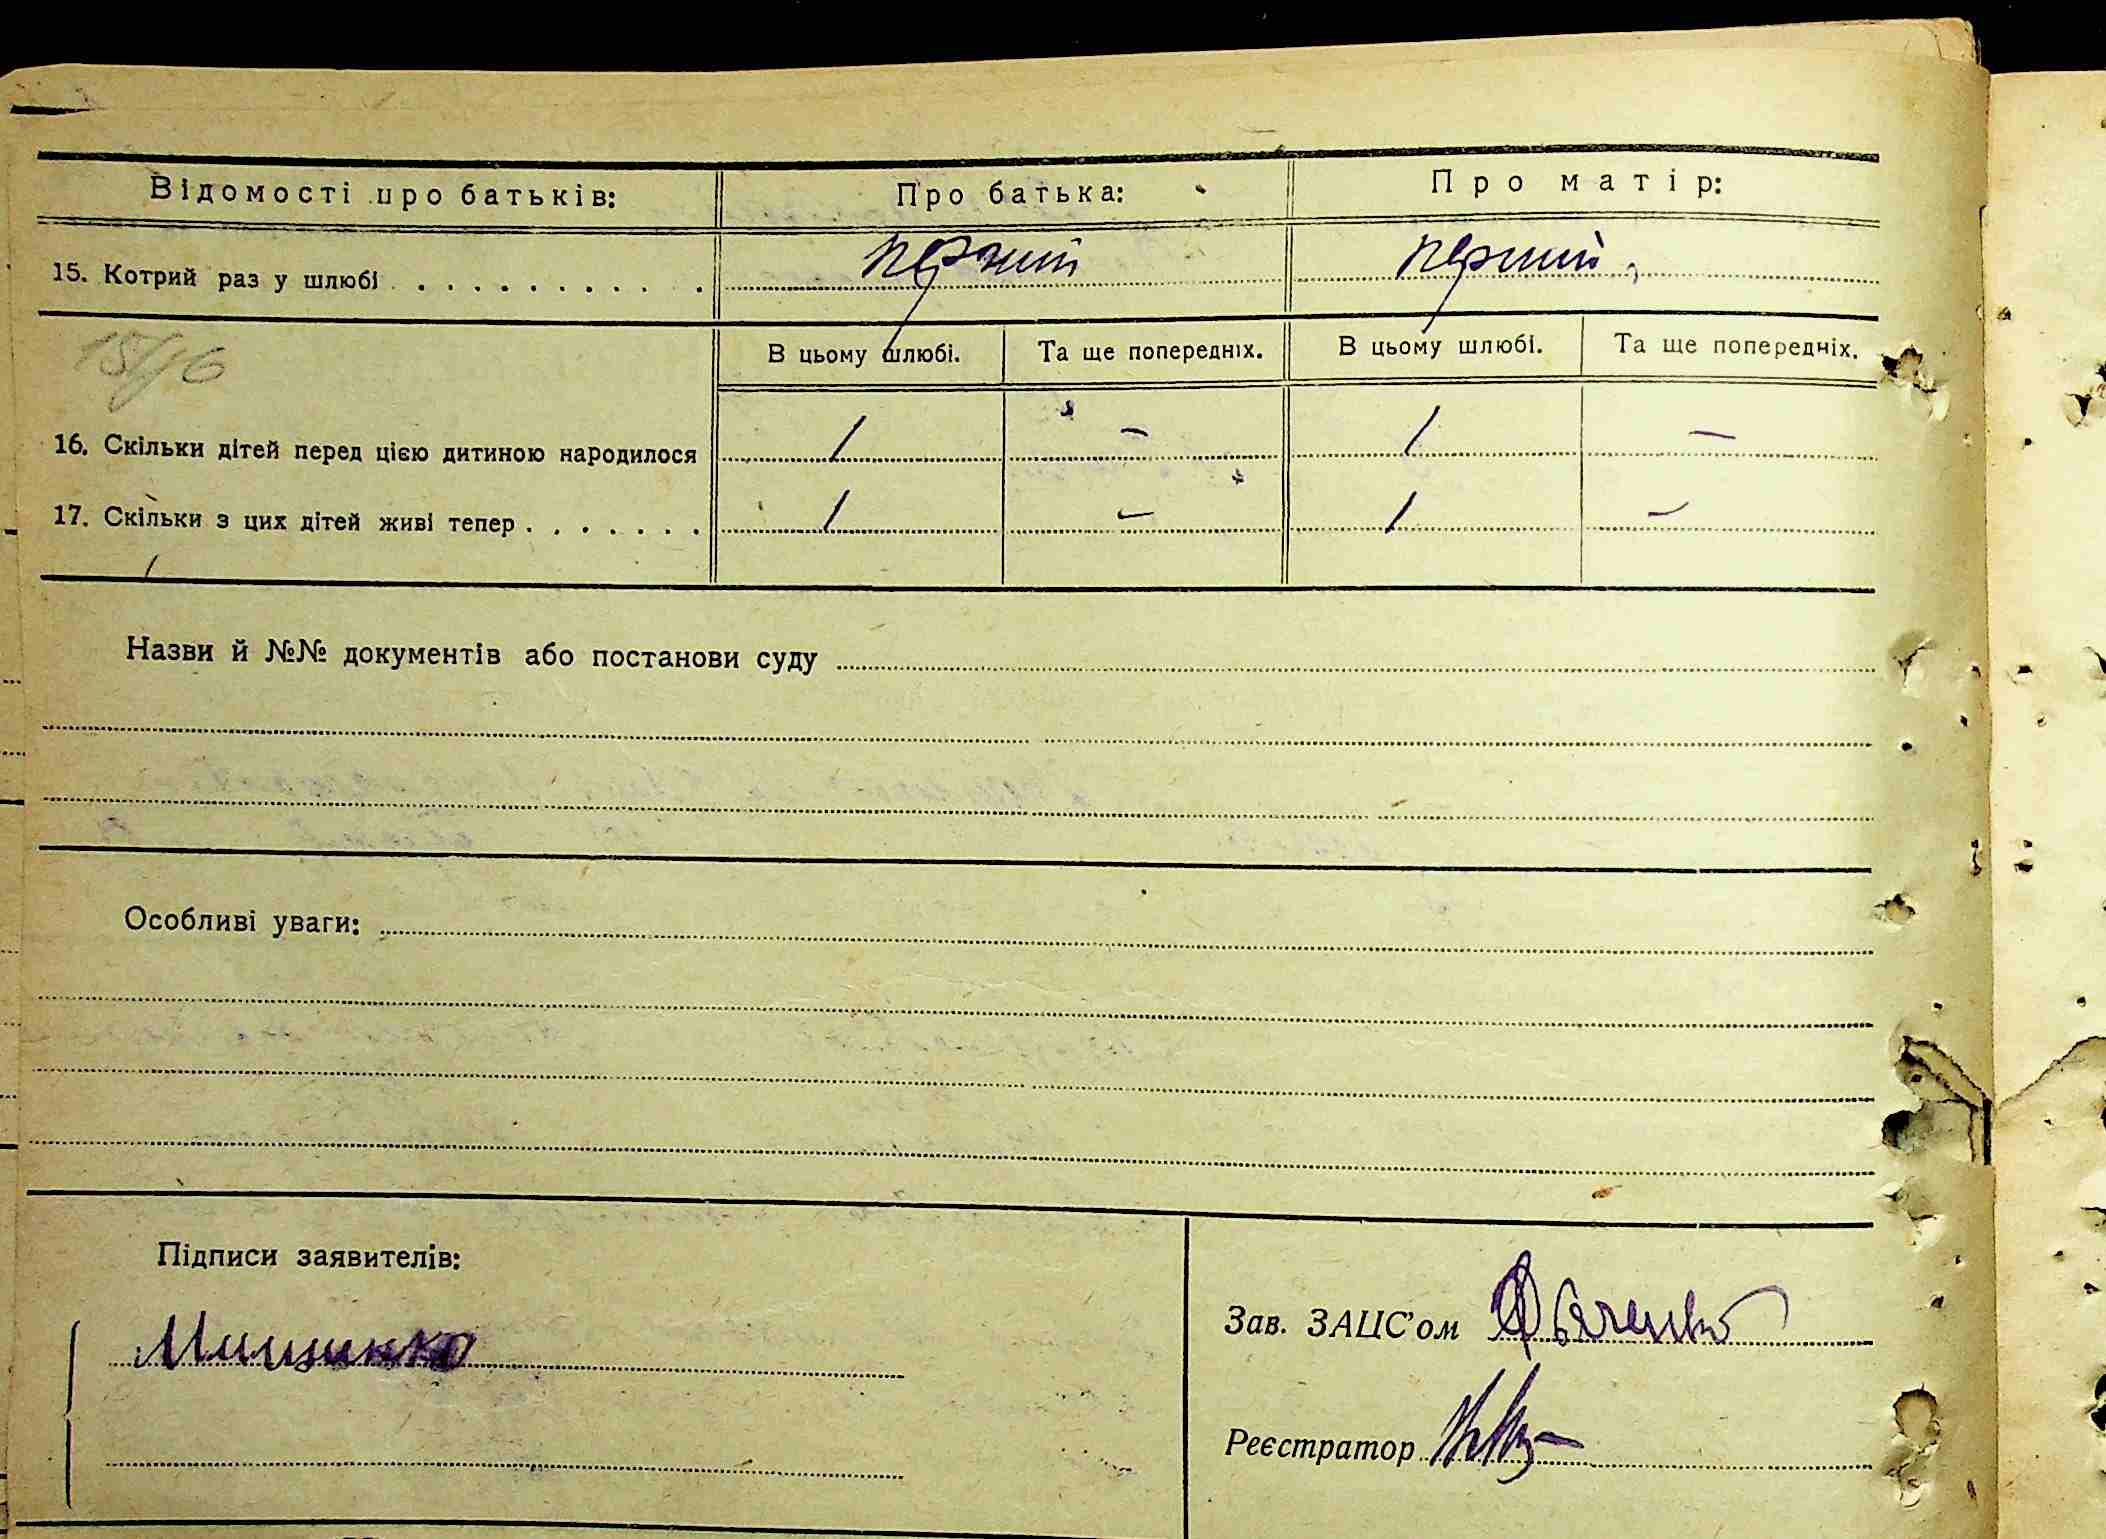 Відомості про батьків: Про батька: Про матір:
15. Котрий раз у шлюбі перший перший
15/16
В цьому шлюбі. Та ще попередніх. В цьому шлюбі. Та ще попередніх.
16. Скільки дітей перед цією дитиною народилося 1 – 1 –
17. Скільки з цих дітей живі тепер 1 – 1 –
Назви й №№ документів або постанови суду
Особливі уваги:
Підписи заявителів:
Мищинко
Зав. ЗАЦС'ом Дьяченко
Реєстратор